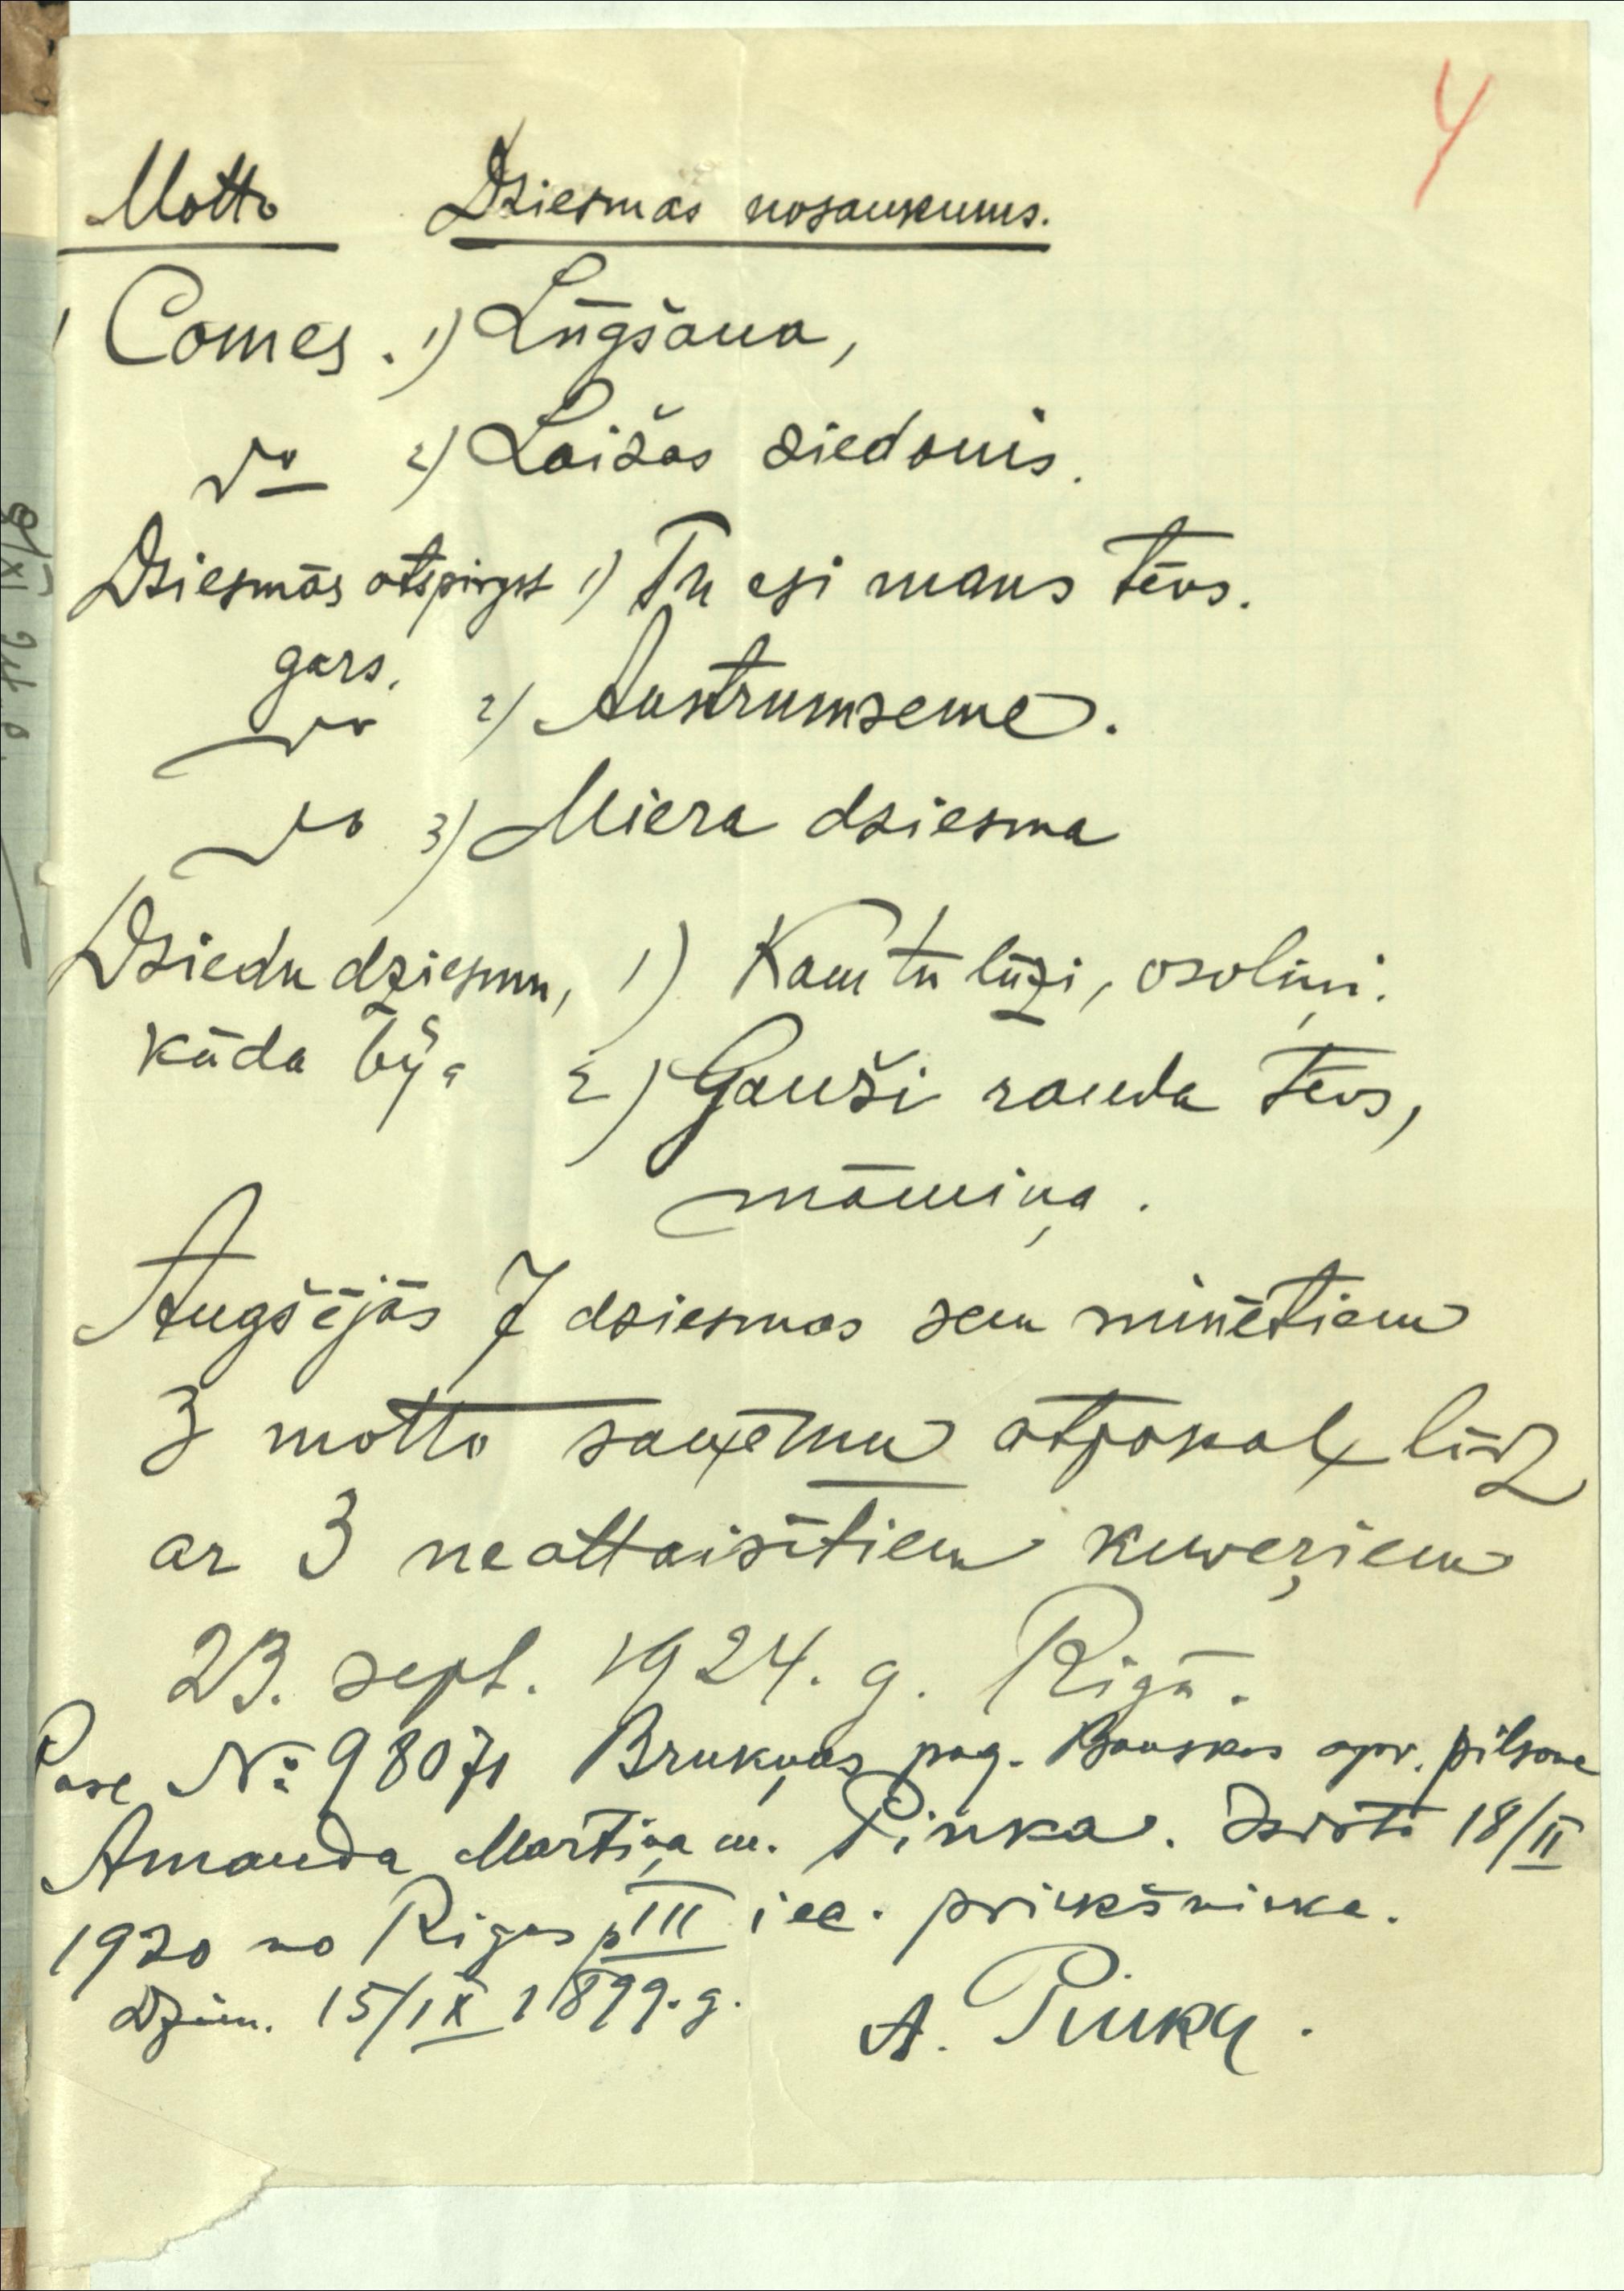 4
Motto Dziesmas nosaukums.
Comes. 1) Lūgšana,
do 2) Laižas ziedonis.
Dziesmās atspirgst 1) Tu esi mans tēvs.
gars.
do 2) Austrumzeme.
do 3) Miera dziesma
Dziedu dziesmu, 1) Kam tu lūzi, ozoliņi.
kāda bij. 2) Gauži rauda tēvs,
māmiņa.
Augšējās 7 dziesmas zem minētiem
3 motto saņēmu atpakaļ līdz
ar 3 neattaisītiem kuveŗiem
23. sept. 1924. g. Rīgā.
Pase № 98071 Brukņas pag. Bauskas apr. pilsone
Amanda Mārtiņa m. Pinka. Izdota 18/II
1920 no Rīgas p III iec. priekšnieka.
Dzim. 15/IX 1899. g.
A. Pinka.